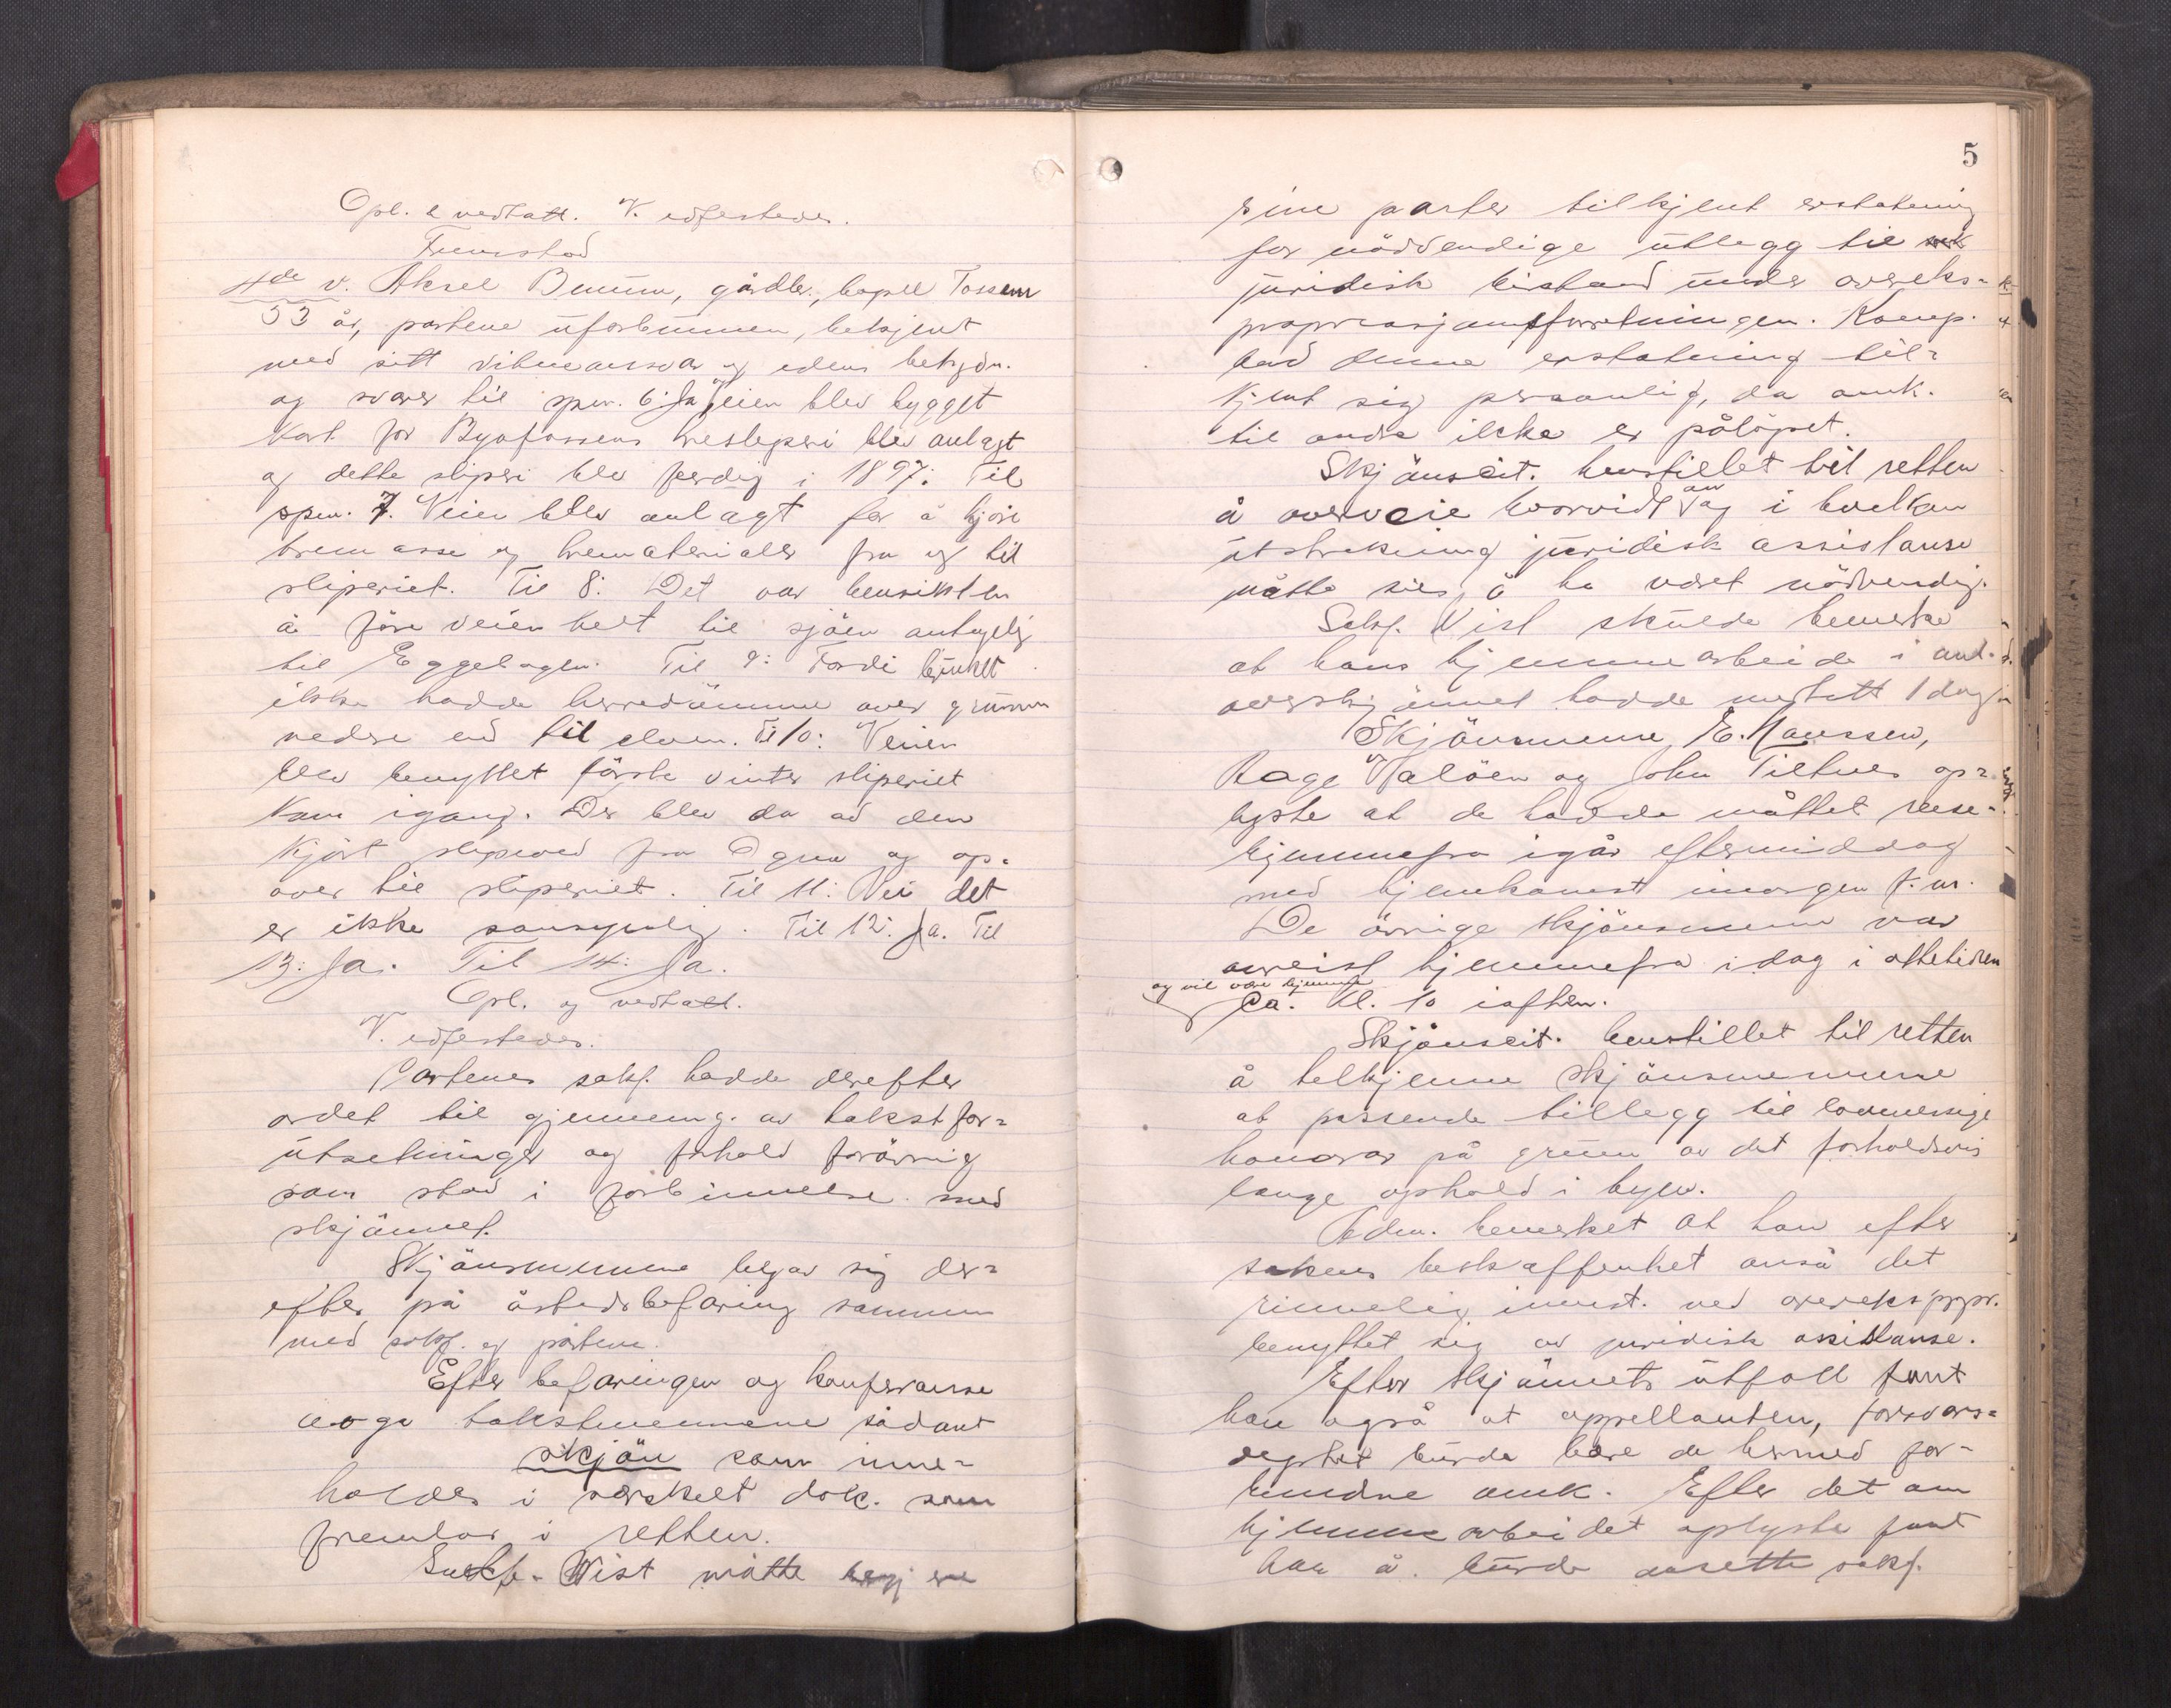 Opl. & vedtatt. V. edfestedes.
Fremstod
4de v. Aksel Benum, gårdbr., bopel Fossem
53 år, partene uforbunnen, bekjent
med sitt vitneansvar og edens betydn.
og svarer til spm. 6: Ja veien blev bygget
kort før Byafossens tresliperi blev anlagt
og dette sliperi blev ferdig i 1897. Til
spm. 7. Veien blev anlagt for å kjöre
tremasse og trematerialer fra og til
sliperiet. Til 8: Det var hensikten
å före veien helt til sjöen antagelig
til Eggebogen. Til 9: Fordi bruket
ikke hadde herredömme over grunnen
nedre end til elven. Til 10: Veien
blev benyttet förste vinter sliperiet
kom igang. Der blev da ad den
kjört slipeved fra Ogna og op-
over til sliperiet. Til 11: Nei det
er ikke sansynlig. Til 12: Ja. Til
13: Ja. Til 14: Ja.
Opl. og vedtatt.
V. edfestedes.
Partenes sakf. hadde derefter
ordet til gjennemg. av takstfor-
utsetninger og forhold forövrig
som stod i forbinnelse med
skjönnet.
Skjönsmennene begav sig der-
efter på åstedsbefaring sammen
med sakf. og partene.
Efter befaringen og konferanse
avga takstmennene sådant
skjön som inne-
holdes i særskilt dok. som
fremlar i retten.
Sakf. Wist måtte begjere
5
sine parter tilkjent erstatning
for nödvendige utlegg til
juridisk bistand under overeks-
propriasjonsforretningen. Komp.
bad denne erstatning til-
kjent sig personlig, da omk.
til andre ikke er pålöpet.
Skjönscit. henstillet til retten
å overveie hvorvidt om og i hvilken
utstrekning juridisk assistanse
måtte sies å ha været nödvendig.
Sakf. Wist skulde bemerke
at hans hjemmearbeide i anl.
overskjönnet hadde medtatt 1 dag
Skjönsmennene E. Hanssen,
Aage Naløen og John Tiltnes op-
lyste at de hadde måttet reise
hjemmefra igår eftermiddag
med hjemkomst imorgen f.m.
De övrige skjönsmenn var
avreist hjemmefra idag i ottetiden
og vil være hjemme
ca. kl. 10 iaften.
Skjönscit. henstillet til retten
å tilkjenne skjönsmennene
et passende tillegg til lovmessige
honorar på grunn av det forholdsvis
lange ophold i byen.
Adm. bemerket at han efter
sakens beskaffenhet anså det
rimelig innst. ved overekspropr.
benyttet sig av juridisk assistanse.
Efter skjönnets utfall fant
han også at appellanten, forsvars-
deptet burde bære de hermed for-
bundne omk. Efter det om
hjemmearbeidet oplyste fant
han å burde ansette sakf.